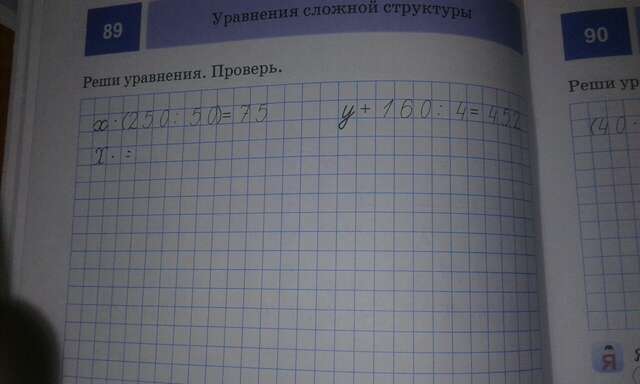 89 Уравнения сложной структуры
Реши уравнения. Проверь.
x·(250:50)=75 y+160:4=452
x·=
90
Реши ур
(40·
Я